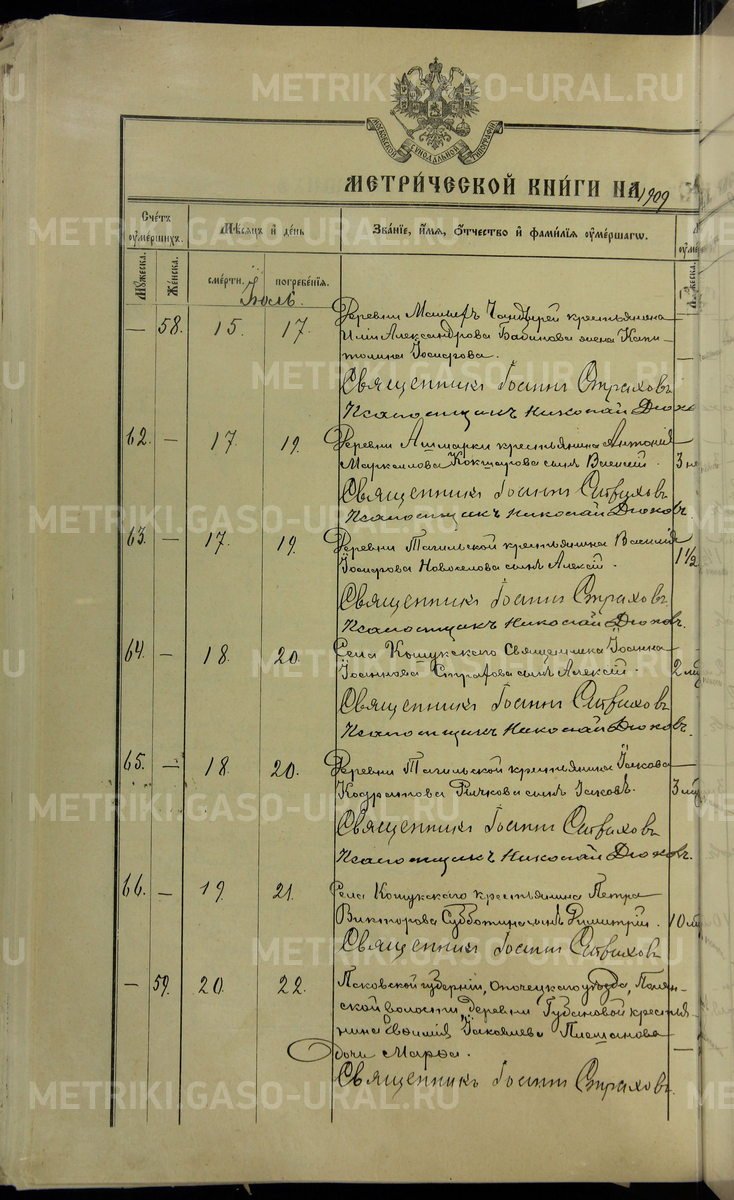 METRIKI.GASO-URAL.RU
МОСКОВСКОЙ СѴНОДАЛЬНОЙ ТИПОГРАФІИ
МЕТРИ́ЧЕСКОЙ КНИ́ГИ НА 1909
Сче́тъ ᲂу҆ме́ршихъ.
Мѣ́сяцъ и҆ де́нь
Зва́нїе, и҆́мя, ѻ҆́тчество и҆ фами́лїя ᲂу҆ме́ршагѡ.
Мꙋ́жеска.
Же́нска.
сме́рти.
погребе́нїя.
Іюль.
— 58. 15 17. Деревни Чандырей крестьянина
Иліи Александрова Бабинова жена Капи-
толина
Священникъ Іоаннъ Страховъ
Псаломщикъ Николай
62. — 17. 19. Деревни Ашмарки крестьянина Антонія
Маркелова Кокшарова сынъ Василій. 3
Священникъ Іоаннъ Страховъ
Псаломщикъ Николай
63. — 17. 19. Деревни Тагильской крестьянина Василія
Новоселова сынъ Алексій. 1 1/2
Священникъ Іоаннъ Страховъ
Псаломщикъ Николай
64. — 18. 20. Села Кошукскаго Священника Іоанна
Іоаннова Страхова сынъ Алексій. 2
Священникъ Іоаннъ Страховъ
Псаломщикъ Николай
65. — 18. 20. Деревни Тагильской крестьянина Іакова
Кодратова Рычкова сынъ Іаковъ. 3
Священникъ Іоаннъ Страховъ
Псаломщикъ Николай
66. — 19 21. Села Кошукскаго крестьянина Петра
Викторова Субботина сынъ Димитрій. 10
Священникъ Іоаннъ Страховъ
— 59. 20. 22. Псковской губерніи, Опочецкаго уѣзда, Полян-
ской волости, деревни Губановой крестья-
нина Евѳимія Іаковлева
дочь Марѳа. —
Священникъ Іоаннъ Страховъ